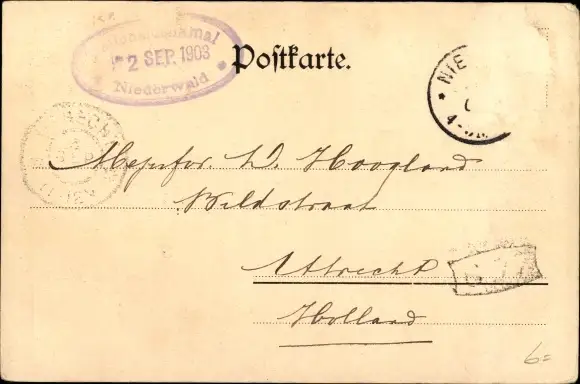 Nationaldenkmal
2 SEP. 1903
Niederwald
Postkarte.
NIE
UTRECHT
W. Hoogland
Wildstraat
Utrecht
Holland
6=